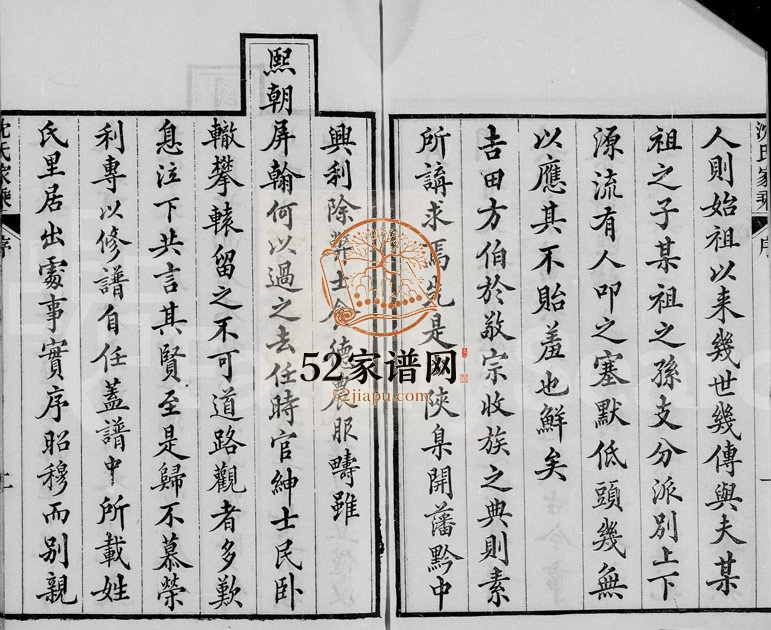 沈氏家乘
序
人則始祖以来幾世幾傳與夫某
祖之子某祖之孫支分派別上下
源流有人叩之塞默低頭幾無
以應其不貽羞也鮮矣
吉田方伯於敬宗收族之典則素
所講求焉先是 陝臬開藩黔中
興利除弊士食德農服疇雖
熙朝屏翰何以過之去任時官紳士民卧
轍攀轅留之不可道路觀者多歎
息泣下共言其賢至是歸不慕榮
利專以修譜自任蓋譜中所載姓
氏里居出處事實序昭穆而別親
沈氏家乘
序
52家谱网
52jiapu.com